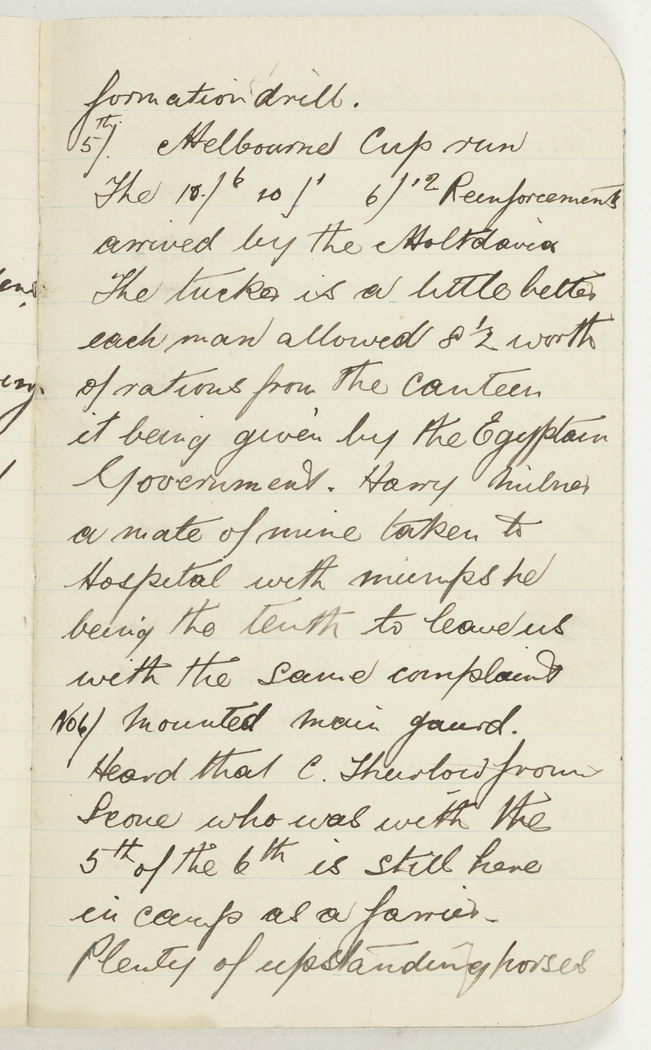 formation drill.
5th/. Melbourne Cup run
The 10/6 10/1 6/12 Reinforcements
arrived by the Moltdavia
The tucker is a little better
each man allowed 8½ worth
of rations from the canteen
it being given by the Egyptain
Government. Harry Milner
a mate of mine taken to
Hospital with mumps he
being the tenth to leave us
with the same complaint
No6/ Mounted main gaurd.
Heard that C. Thurlow from
Scone who was with the
5th of the 6th is still here
in camp as a farrier.
Plenty of upstanding horses